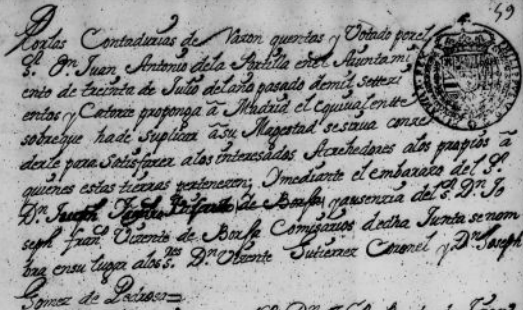 59
Por las Contadurias de Razon quentas y Votado por el
Sr. Dn. Juan Antonio de la Portilla en el Ayuntami
ento de treinta de Julio del año pasado de mil setezi
entos y Catorze proponga â Madrid el equivalente
sobre que ha de suplicar â su Magestad se sirva conze
derle para Satisfazer a los interesados Acrehedores a los propios â
quienes estas tierras pertenezen; Y mediante el embarazo del Sr.
Dn. Joseph de Borja y ausenzia del Sr. Dn. Jo
seph franco. Vizente de Borja Comisarios de dha Junta se nom
bra en su lugar a los Sres. Dn. Vizente Gutierrez Coronel y Dn. Joseph
Gomez de Pedrosa=